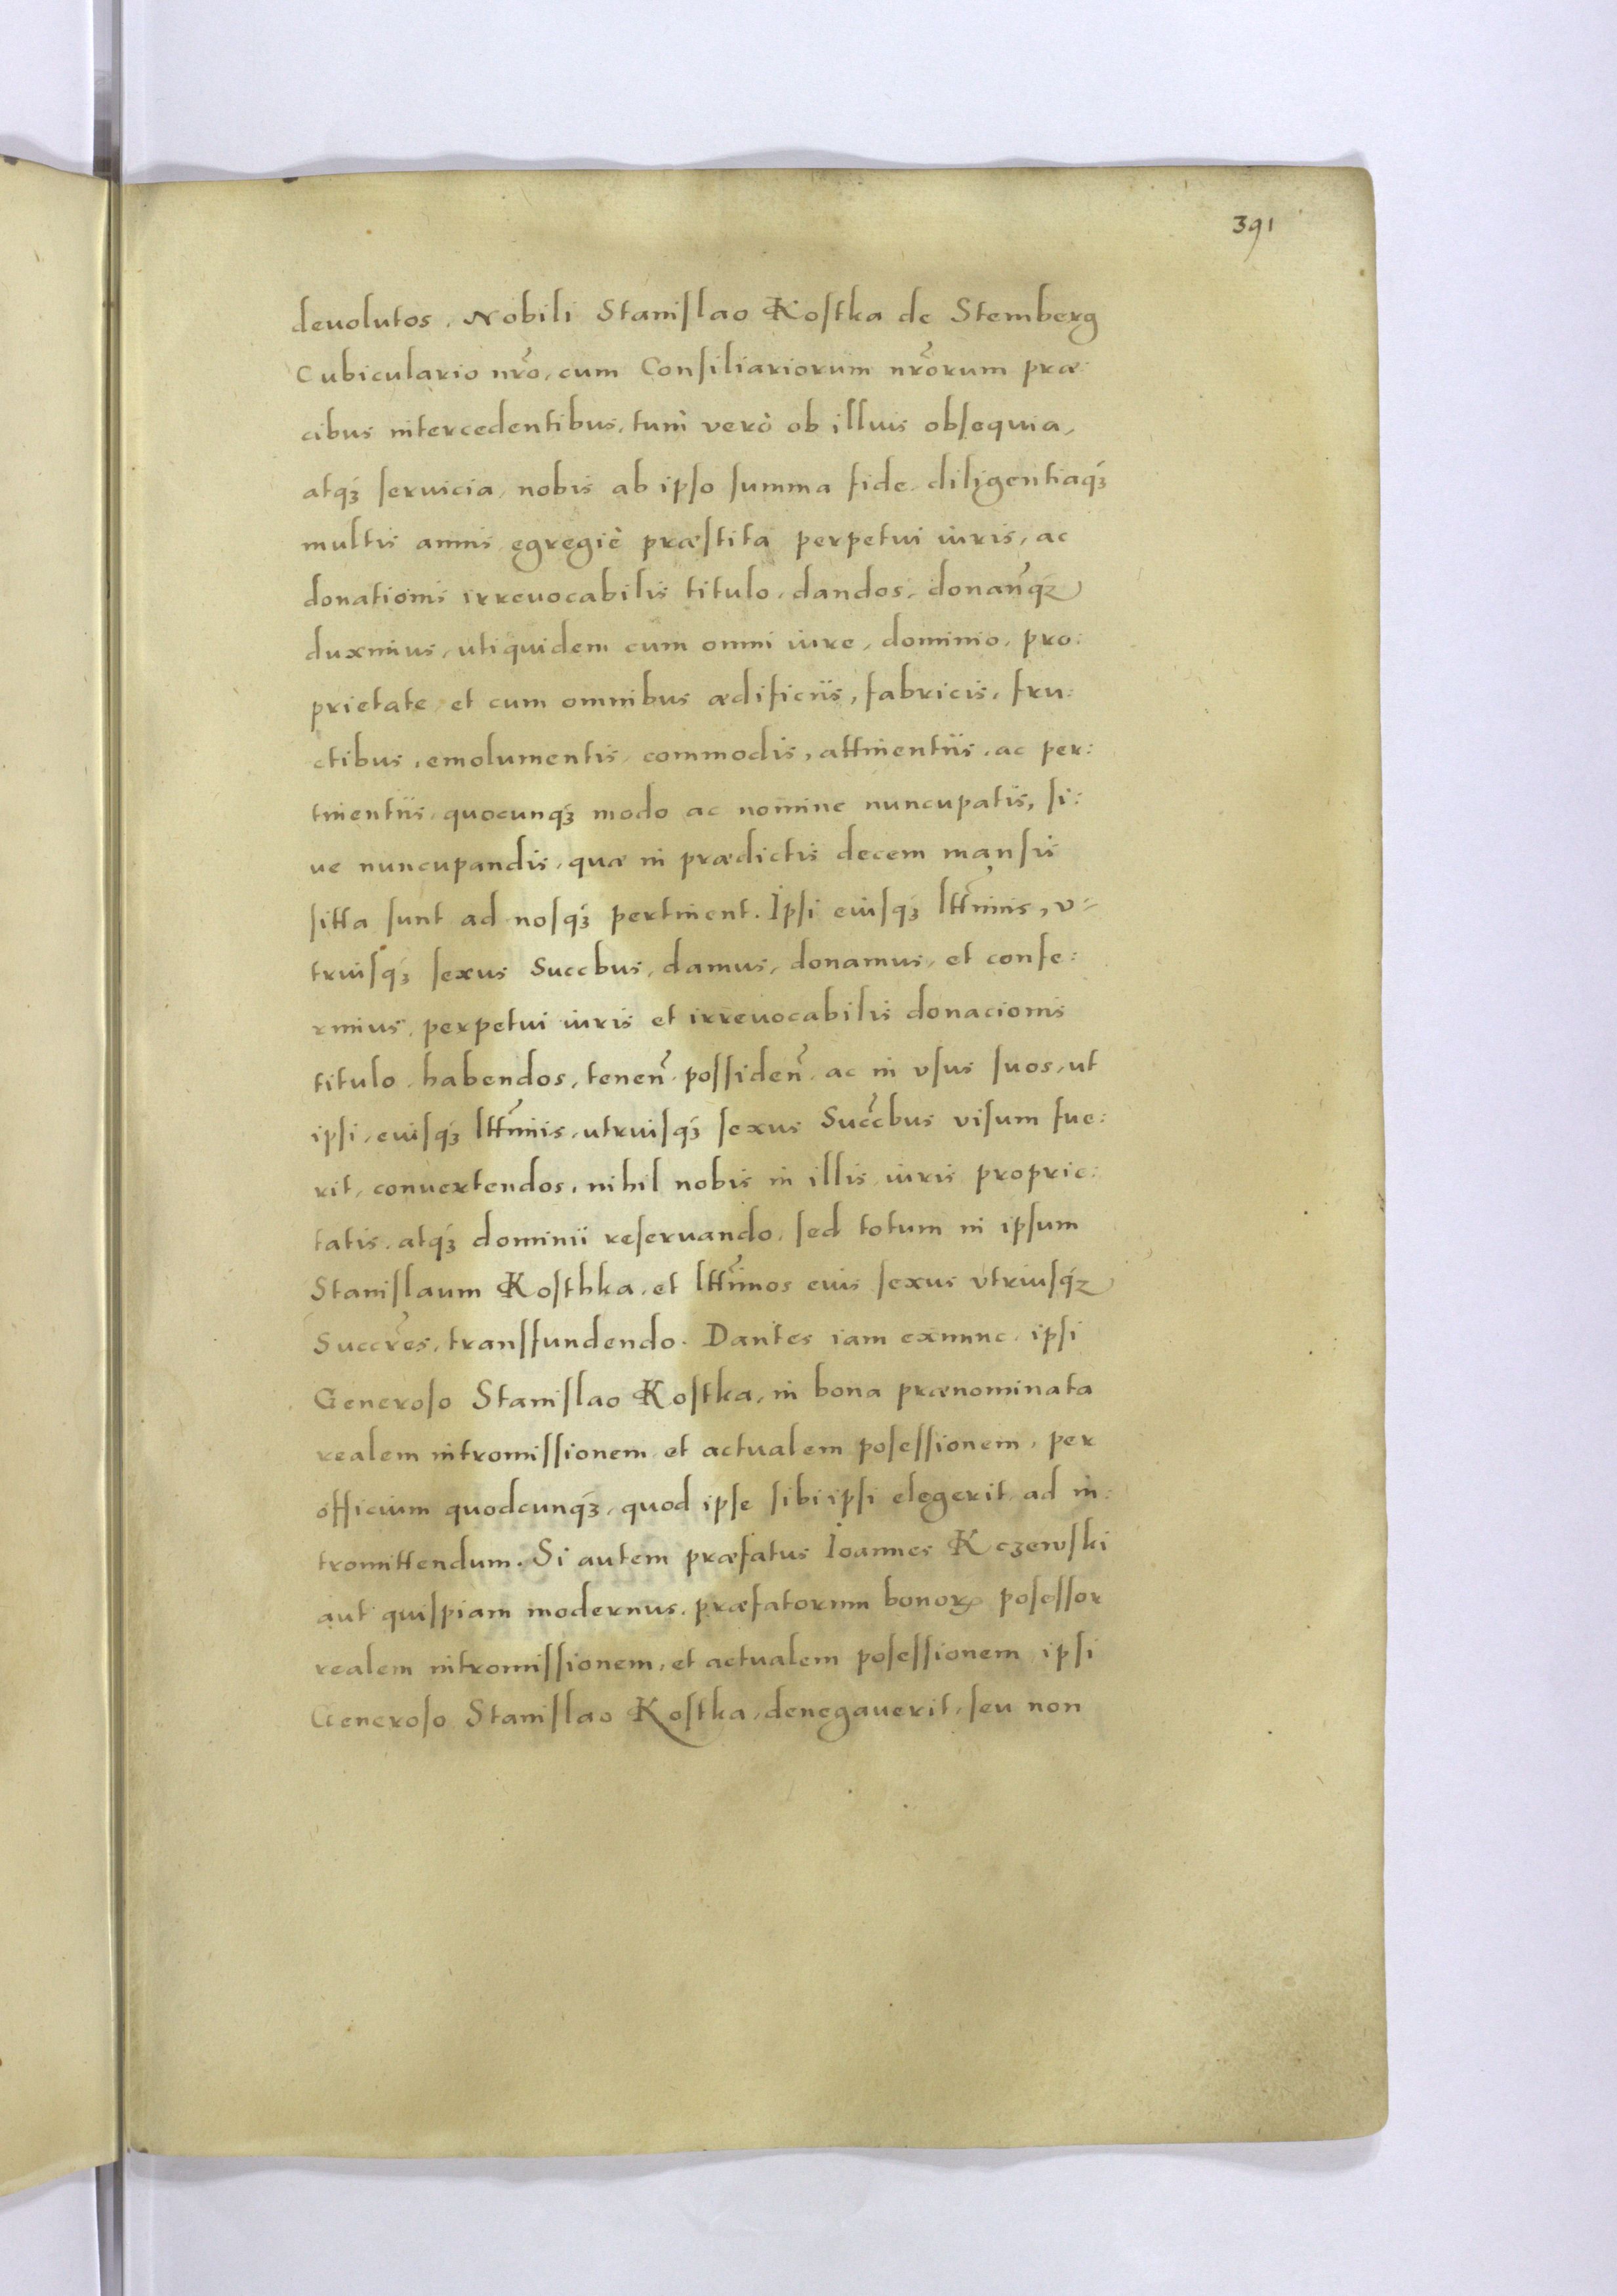 391
deuolutos. Nobili Stanislao Kostka de Stemberg
Cubiculario nr̃o, cum Consiliariorum nr̃orum præ:
cibus intercedentibus, tum̀ verò ob illius obsequia,
atqꝫ seruicia, nobis ab ipso summa fide diligentiaqꝫ
multis annis egregiè præstita perpetui iuris, ac
donationis irreuocabilis titulo, dandos, donan̄qꝫ
duximus, uti quidem cum omni iure, dominio, pro:
prietate, et cum omnibus ædificiis, fabricis, fru:
ctibus, emolumentis, commodis, attinentiis, ac per:
tinentiis, quocunqꝫ modo ac nomine nuncupatis, si:
ue nuncupandis, quæ in prædictis decem mansis
sitta sunt ad nosqꝫ pertinent. Ipsi eiusqꝫ ltt̃imis, v=
triusqꝫ sexus Succbus, damus, donamus, et confe:
rimus, perpetui iuris et irreuocabilis donacionis
titulo, habendos, tenen̄, possiden̄, ac in vsus suos, ut
ipsi, eiusqꝫ ltt̃imis, utriusqꝫ sexus Succ̃bus visum fue:
rit, conuertendos, nihil nobis in illis iuris proprie:
tatis, atqꝫ dominii reseruando, sed totum in ipsum
Stanislaum Kosthka, et ltt̃imos eius sexus vtriusqꝫ
Succr̃es, transfundendo. Dantes iam exnunc, ipsi
Generoso Stanislao Kostka, in bona prænominata
realem intromissionem, et actualem posessionem, per
officium quodcunqꝫ, quod ipse sibi ipsi elegerit, ad in:
tromittendum. Si autem præfatus Ioannes Kczewski
aut quispiam modernus, præfatorum bonoꝝ posessor
realem intromissionem, et actualem posessionem ipsi
Generoso Stanislao Kostka, denegauerit, seu non